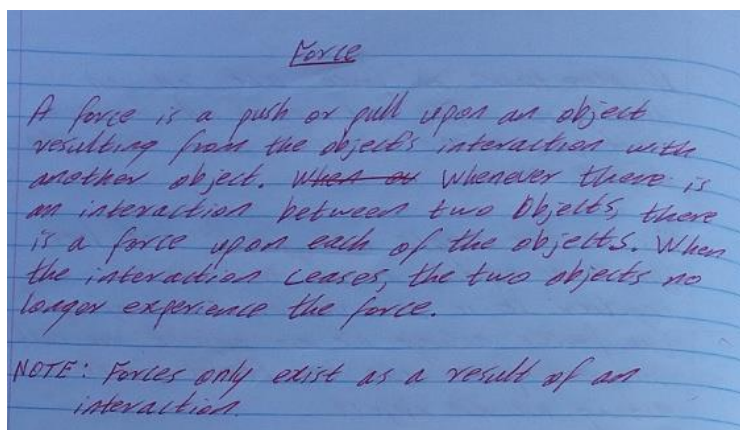 Force
A force is a push or pull upon an object
resulting from the object's interaction with
another object. When ev Whenever there is
an interaction between two Objects, there
is a force upon each of the objects. When
the interaction ceases, the two objects no
longer experience the force.
NOTE: Forces only exist as a result of an
interaction.